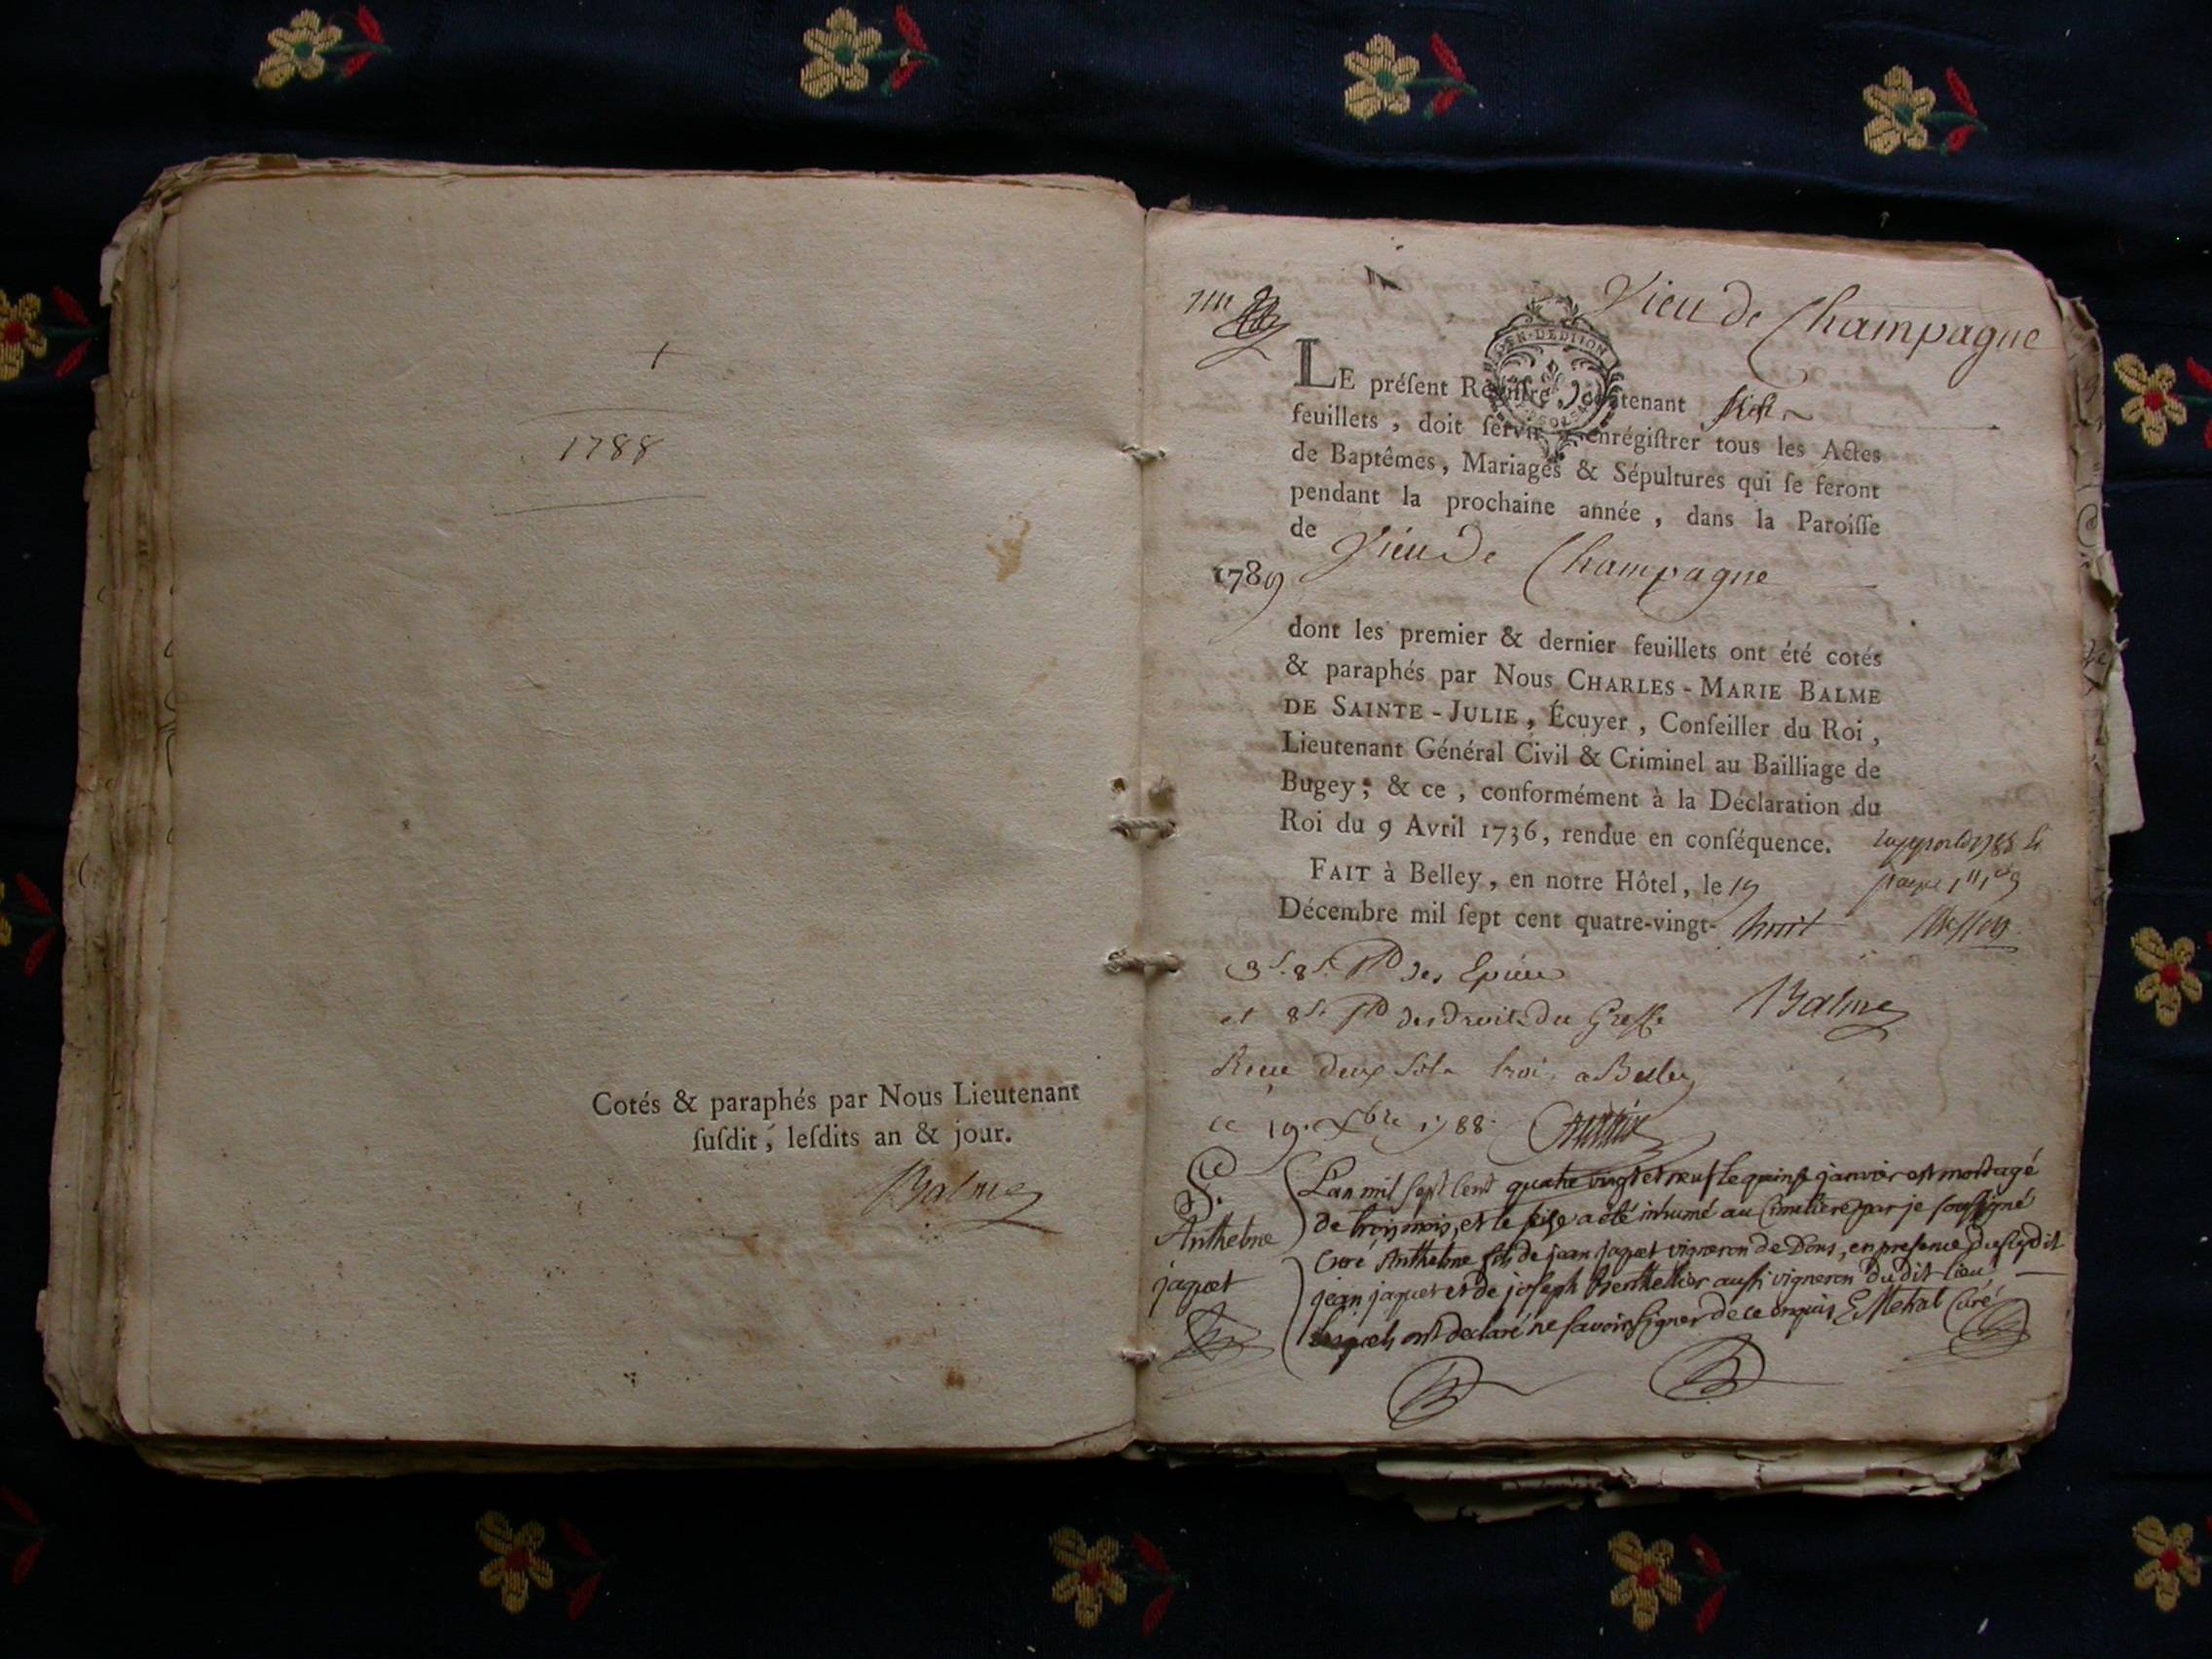 1788
Cotés & paraphés par Nous Lieutenant
ſuſdit, leſdits an & jour.
Balme
Vieu de Champagne
GEN. DE DIJON
LE préſent Regiſtre, contenant
feuillets, doit ſervir à enrégiſtrer tous les Actes
de Baptêmes, Mariages & Sépultures qui ſe feront
pendant la prochaine année, dans la Paroiſſe
de Vieu De Champagne
1789
dont les premier & dernier feuillets ont été cotés
& paraphés par Nous CHARLES-MARIE BALME
DE SAINTE-JULIE, Écuyer, Conſeiller du Roi,
Lieutenant Général Civil & Criminel au Bailliage de
Bugey; & ce, conformément à la Déclaration du
Roi du 9 Avril 1736, rendue en conſéquence.
FAIT à Belley, en notre Hôtel, le 19
Décembre mil ſept cent quatre-vingt-huit
des Epices
et 8 s. des droits du Greffe
Balme
Receu deux sols trois a Belley
ce 19. Xbre 1788.
S.
Anthelme
jaquet
L'an mil sept cent quatre vingt et neuf le quinse janvier est mort agé
de trois mois, et le seise a été inhumé au Cimetiere par je soussigné
Curé Anthelme fils de jean jaquet vigneron de Dons, en presence dudit
jean jaquet et de joseph Berthellier aussi vigneron du dit lieu
lesquels ont declaré ne savoir signer de ce enquis E Metral Curé